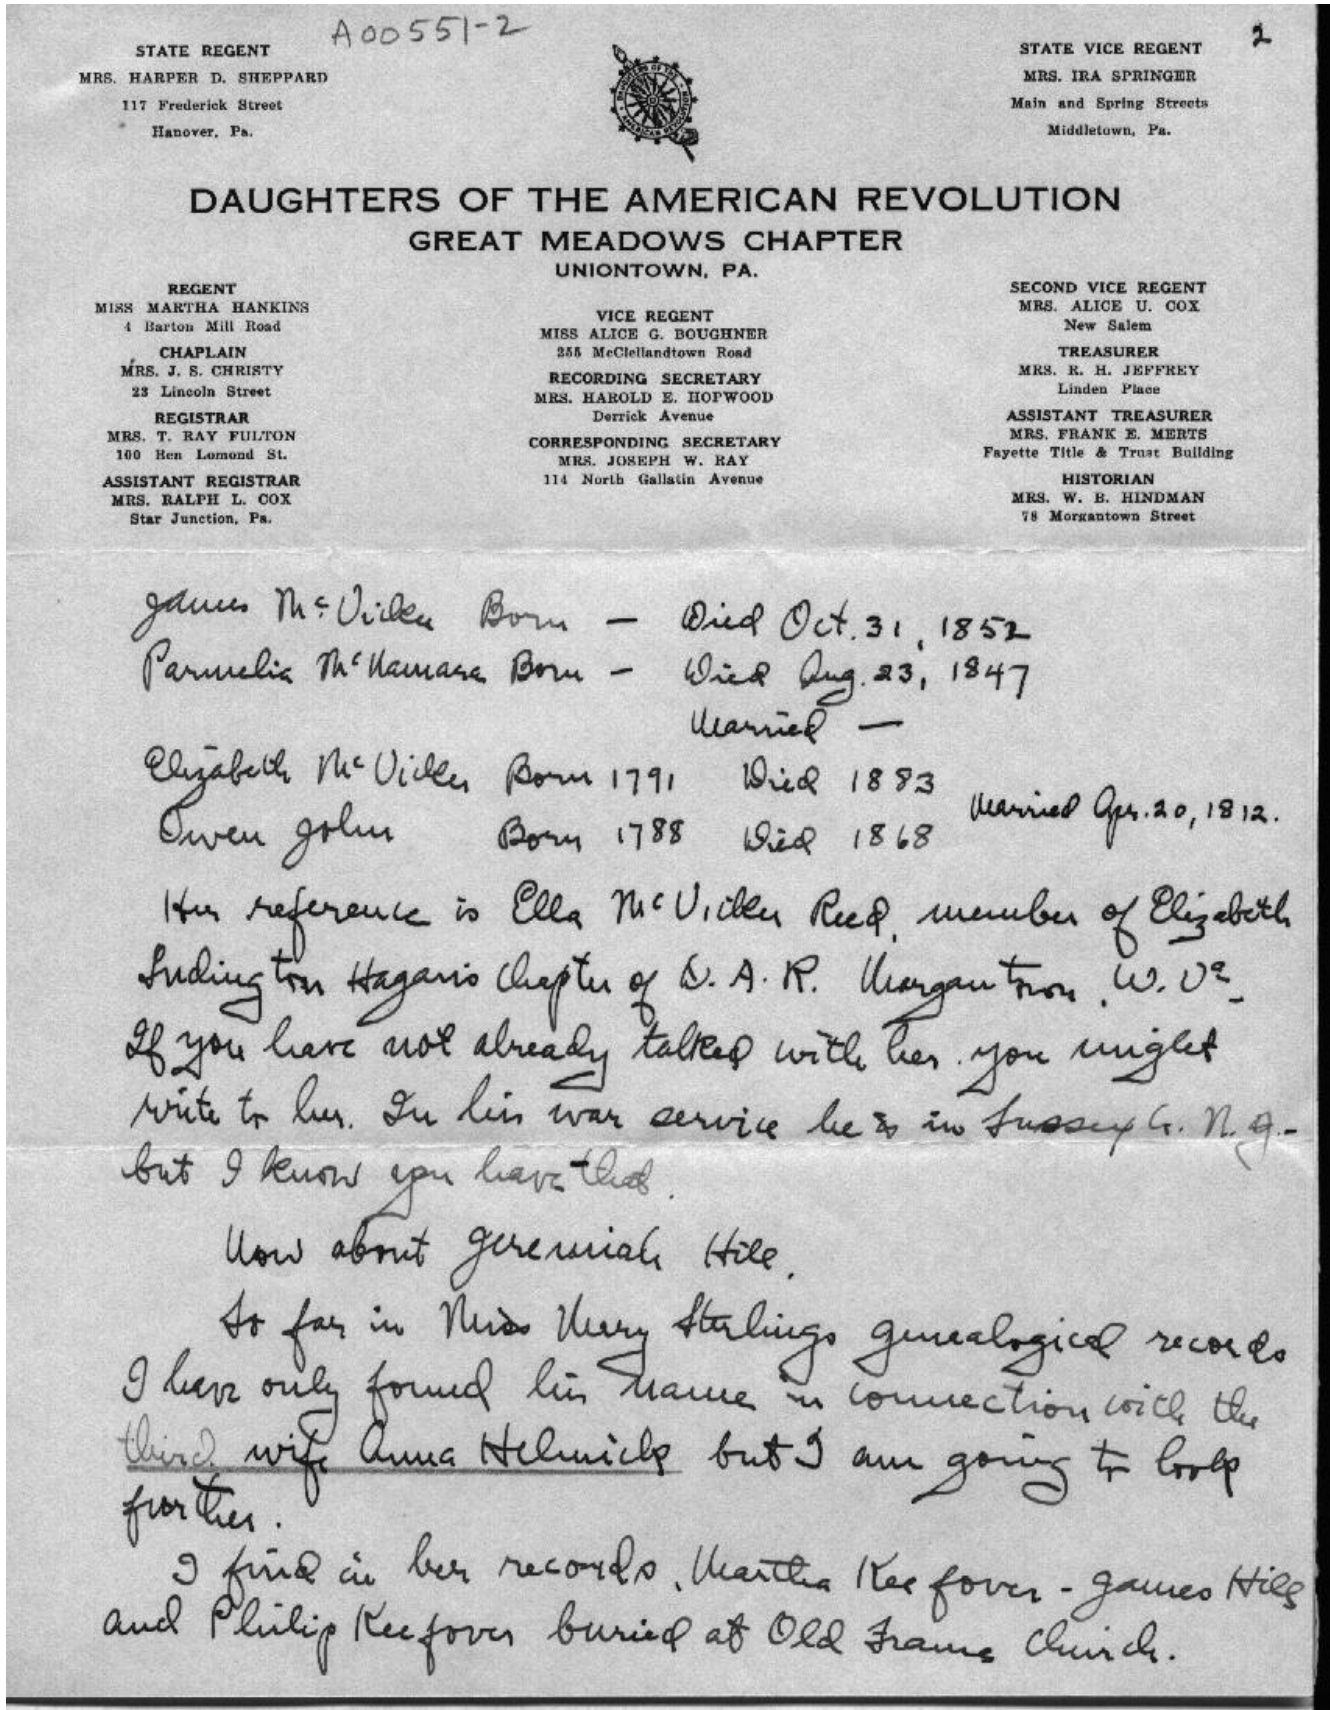 A00551-2
2
STATE REGENT
MRS. HARPER D. SHEPPARD
117 Frederick Street
Hanover, Pa.
STATE VICE REGENT
MRS. IRA SPRINGER
Main and Spring Streets
Middletown, Pa.
DAUGHTERS OF THE AMERICAN REVOLUTION
GREAT MEADOWS CHAPTER
UNIONTOWN, PA.
REGENT
MISS MARTHA HANKINS
4 Barton Mill Road
CHAPLAIN
MRS. J. S. CHRISTY
23 Lincoln Street
REGISTRAR
MRS. T. RAY FULTON
100 Ben Lomond St.
ASSISTANT REGISTRAR
MRS. RALPH L. COX
Star Junction, Pa.
VICE REGENT
MISS ALICE G. BOUGHNER
255 McClellandtown Road
RECORDING SECRETARY
MRS. HAROLD E. HOPWOOD
Derrick Avenue
CORRESPONDING SECRETARY
MRS. JOSEPH W. RAY
114 North Gallatin Avenue
SECOND VICE REGENT
MRS. ALICE U. COX
New Salem
TREASURER
MRS. R. H. JEFFREY
Linden Place
ASSISTANT TREASURER
MRS. FRANK E. MERTS
Fayette Title & Trust Building
HISTORIAN
MRS. W. B. HINDMAN
78 Morgantown Street
James McVicker Born — Died Oct. 31, 1852
Parmelia McNamara Born — Died Aug. 23, 1847
Married —
Elizabeth McVicker Born 1791 Died 1883
Married Apr. 20, 1812.
Owen John Born 1788 Died 1868
Her reference is Ella McVicker Reed, member of Elizabeth
Ludington Hagans Chapter of D. A. R. Morgantown, W. Va.
If you have not already talked with her you might
write to her. In his war service he is in Sussex Co. N. J. -
but I know you have that.
Now about Jeremiah Hill.
So far in Miss Mary Sterlings genealogical records
I have only found his name in connection with the
third wife Anna Helmick but I am going to look
further.
I find in her records, Martha Keefover - James Hill
and Philip Keefover buried at Old Frame Church.